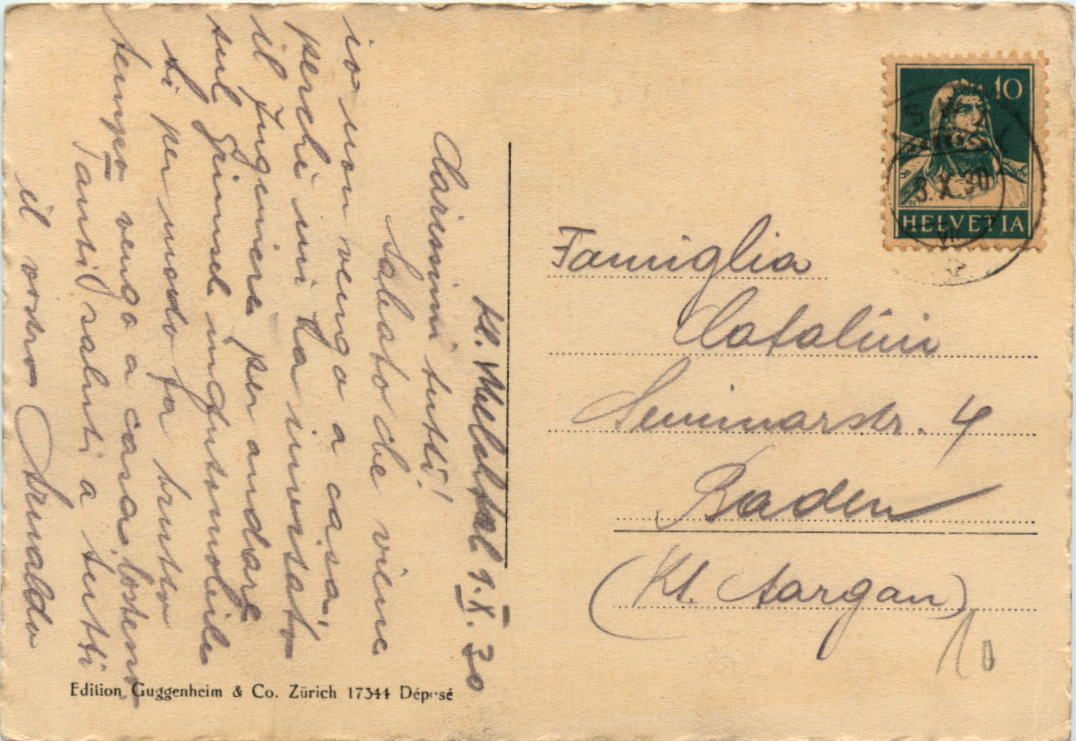 Kl. Melchtal 1. X. 30
Carissimi tutti!
Sabato che viene
io non vengo a casa
perchè mi ha invitato
il Ingeniere per andare
sul Grimsel in Automobile
per modo fa brutto
tempo vengo a casa.
Tanti saluti a tutti
il vostro Arnaldo
Famiglia
Catalini
Seminarstr. 4
Baden
(Kt. Aargau)
10
10
HELVETIA
X. 30
Edition Guggenheim & Co. Zürich 17344 Déposé